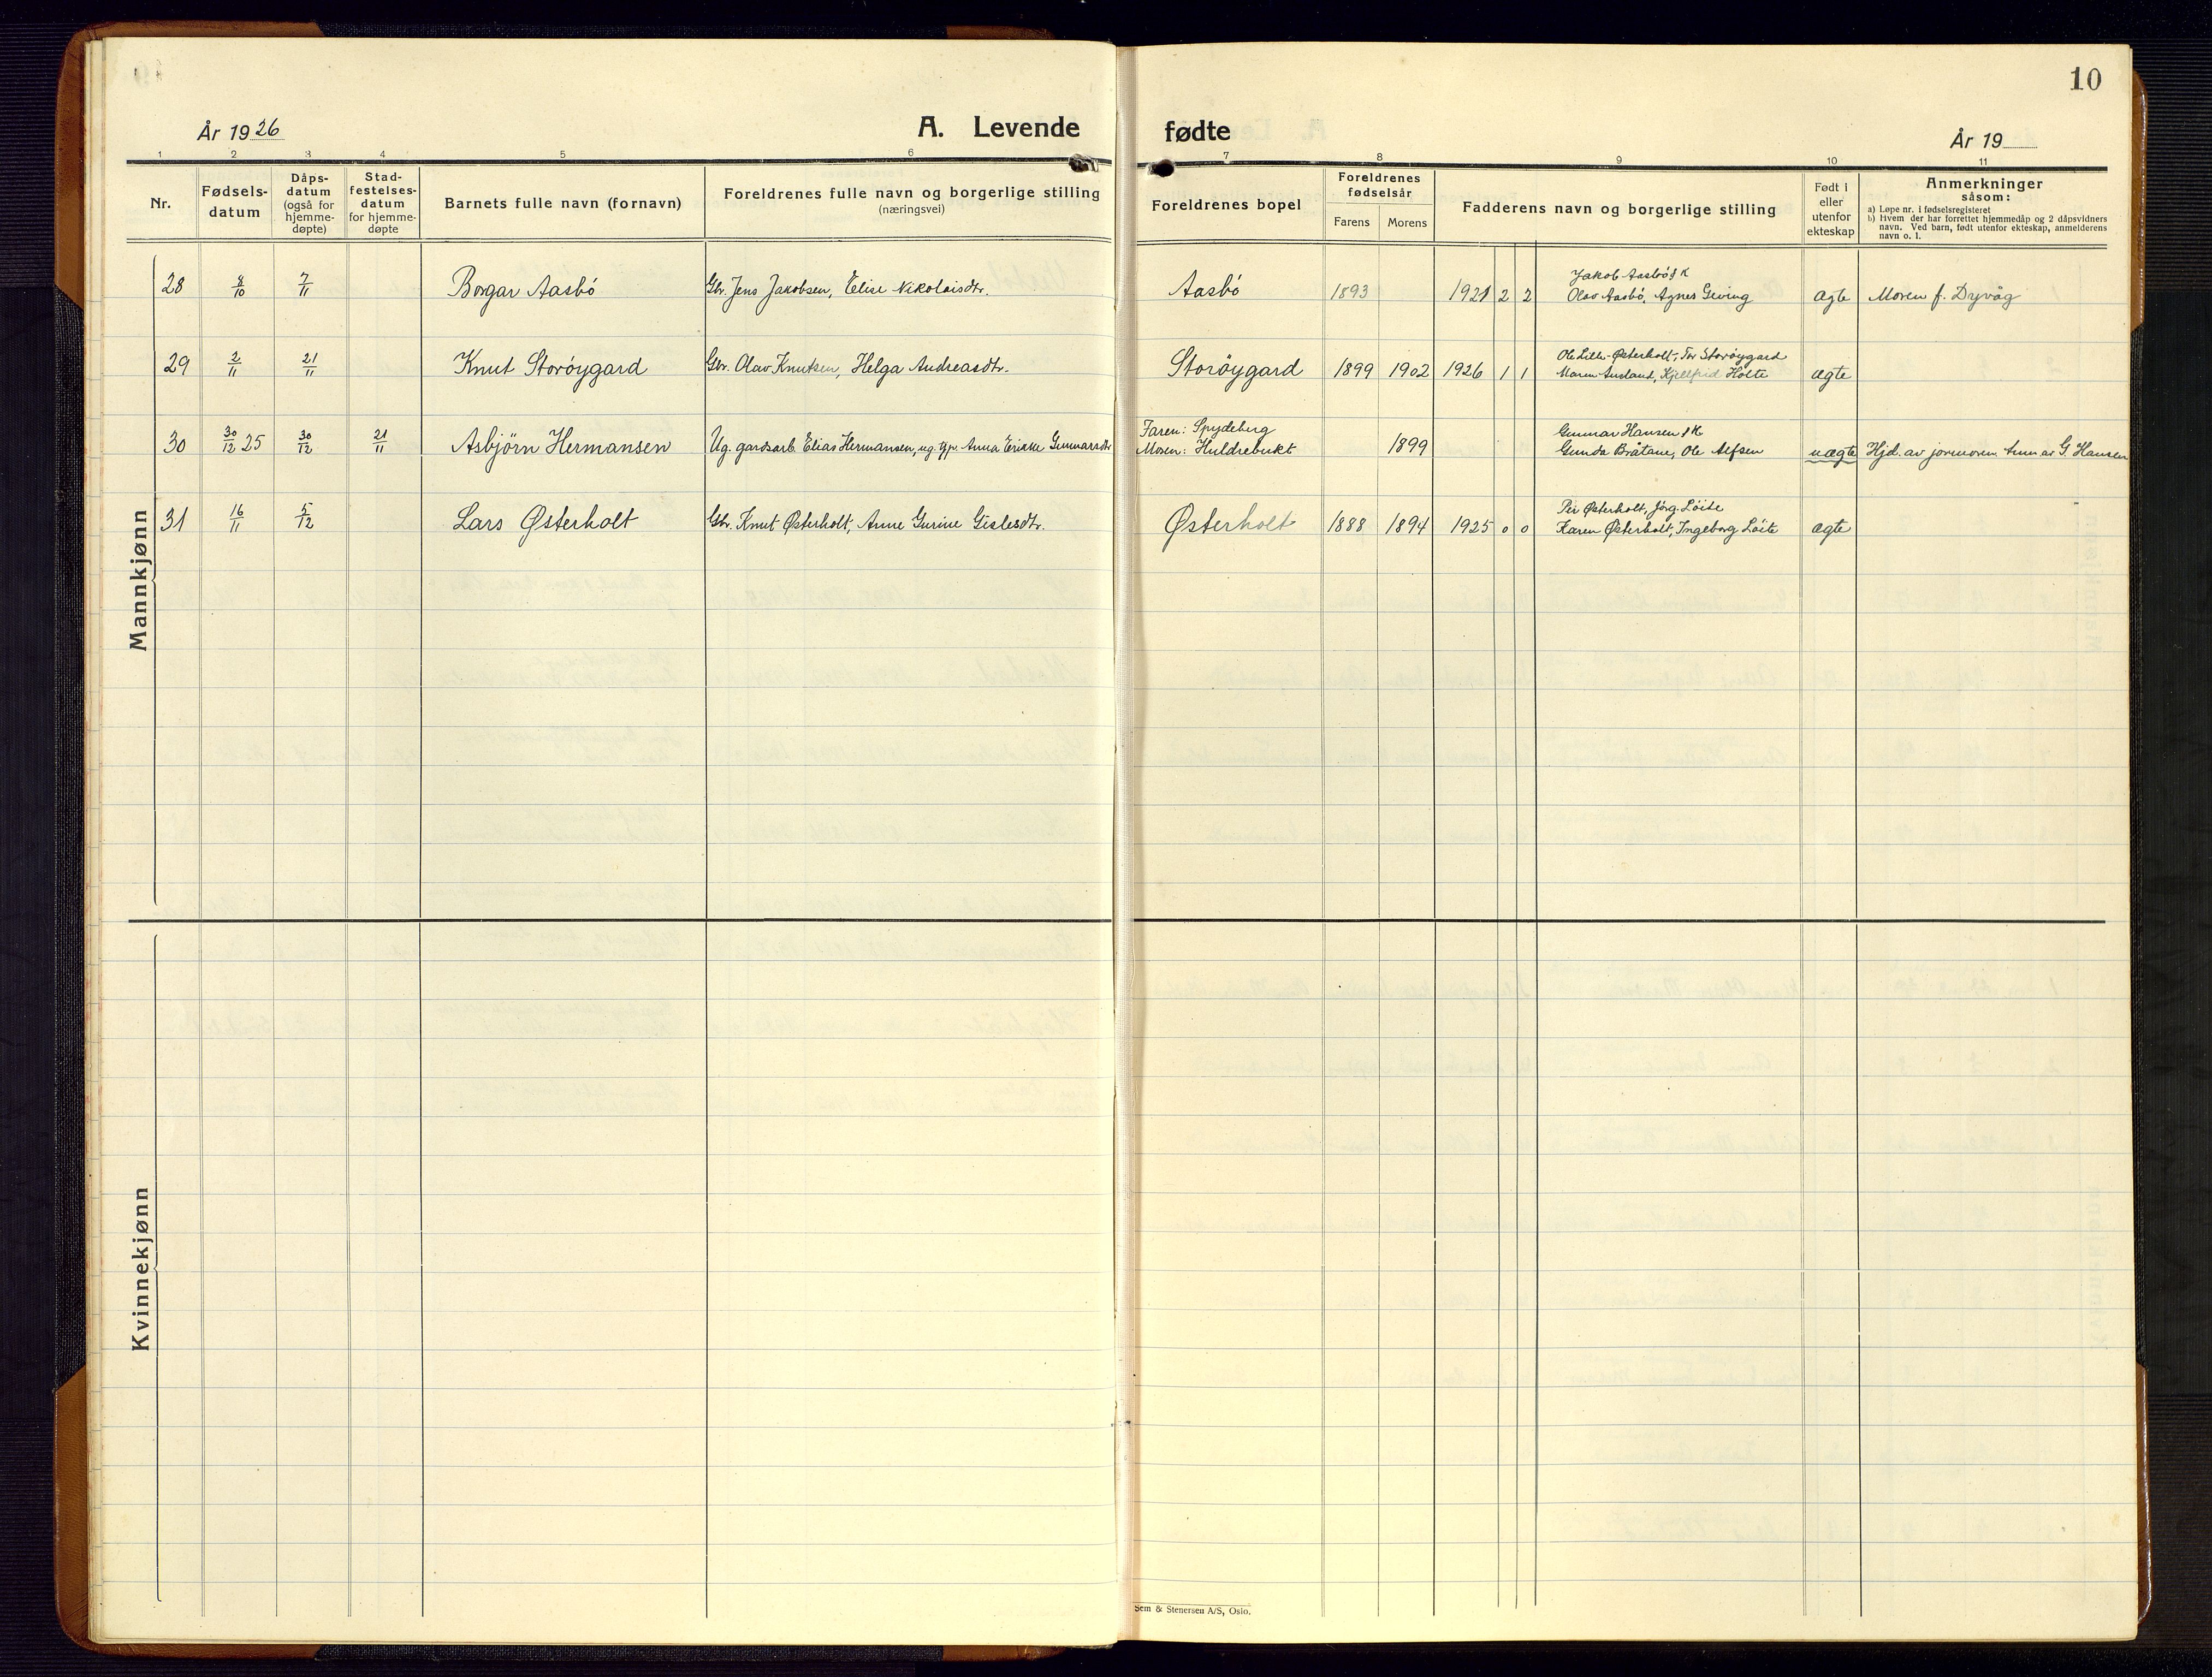 10
År 1926
A. Levende fødte
År 19
1 2 3 4 5 6 7 8 9 10 11
Nr.
Fødsels-
datum
Dåps-
datum
(også for
hjemme-
døpte)
Stad-
festelses-
datum
for hjemme-
døpte
Barnets fulle navn (fornavn)
Foreldrenes fulle navn og borgerlige stilling
(næringsvei)
Foreldrenes bopel
Foreldrenes
fødselsår
Farens Morens
Fadderens navn og borgerlige stilling
Født i
eller
utenfor
ekteskap
Anmerkninger
såsom:
a) Løpe nr. i fødselsregisteret
b) Hvem der har forrettet hjemmedåp og 2 dåpsvidners
navn. Ved barn, født utenfor ekteskap, anmelderens
navn o. l.
Mannkjønn
Jakob Aasbó & K
28 8/10 7/11 Borgar Aasbó Gbr. Jens Jakobsen, Elise Nikolaisdtr. Aasbó 1893 1921 2 2 Olav Aasbó, Agnes Geving ægte Moren f. Dyvåg
Ole Lille-Østerholt, Tor Storóygard
29 2/11 21/11 Knut Storóygard Gbr. Olav Knutsen, Helga Andreasdtr. Storóygard 1899 1902 1926 1 1 Maren Ausland, Kjellfrid Holte ægte
Faren: Spydeberg Gunnar Hansen & K
30 30/12 25 30/12 21/11 Asbjörn Hermansen Ug. gardsarb. Elias Hermansen, ug. tjp. Anna Erikke Gunnarsdtr Moren: Huldrebukt 1899 Gunda Bråtane, Ole Alfsen uægte Hjd. av jormoren G. Hansen
Per Østerholt, Jörg. Löite
31 16/11 5/12 Lars Østerholt Gbr. Knut Østerholt, Anne Gurine Gislesdtr. Østerholt 1888 1894 1925 0 0 Karen Østerholt, Ingeborg Löite ægte
Kvinnekjønn
Sem & Stenersen A/S, Oslo.